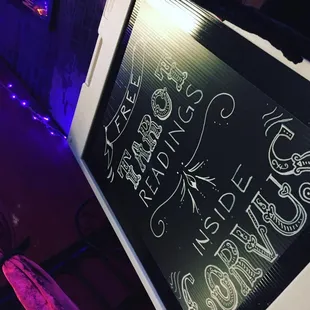 FREE
TAROT
READINGS
INSIDE
CORVUS